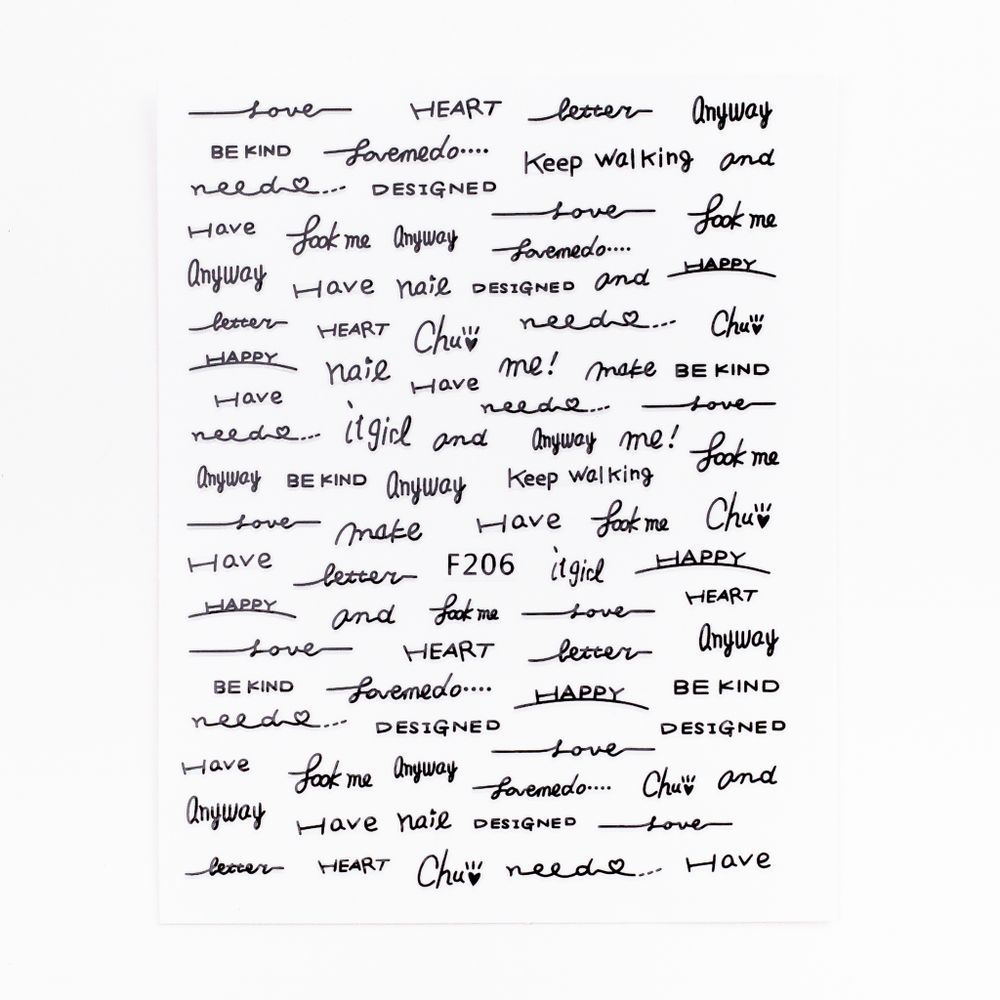 Love HEART letter Anyway
BE KIND Lovemedo.... Keep walking and
need... DESIGNED
Love Look me
Have Look me Anyway Lovemedo....
Anyway Have nail DESIGNED and HAPPY
letter HEART Chu need... Chu
HAPPY nail Have me! make BE KIND
Have need... Love
need... it girl and Anyway me! Look me
Anyway BE KIND Anyway Keep walking
Love make Have Look me Chu
Have letter F206 it girl HAPPY
HAPPY and Look me Love HEART
Love HEART letter Anyway
BE KIND Lovemedo.... HAPPY BE KIND
need... DESIGNED DESIGNED
Love
Have Look me Anyway Lovemedo.... Chu and
Anyway Have nail DESIGNED Love
letter HEART Chu need... Have